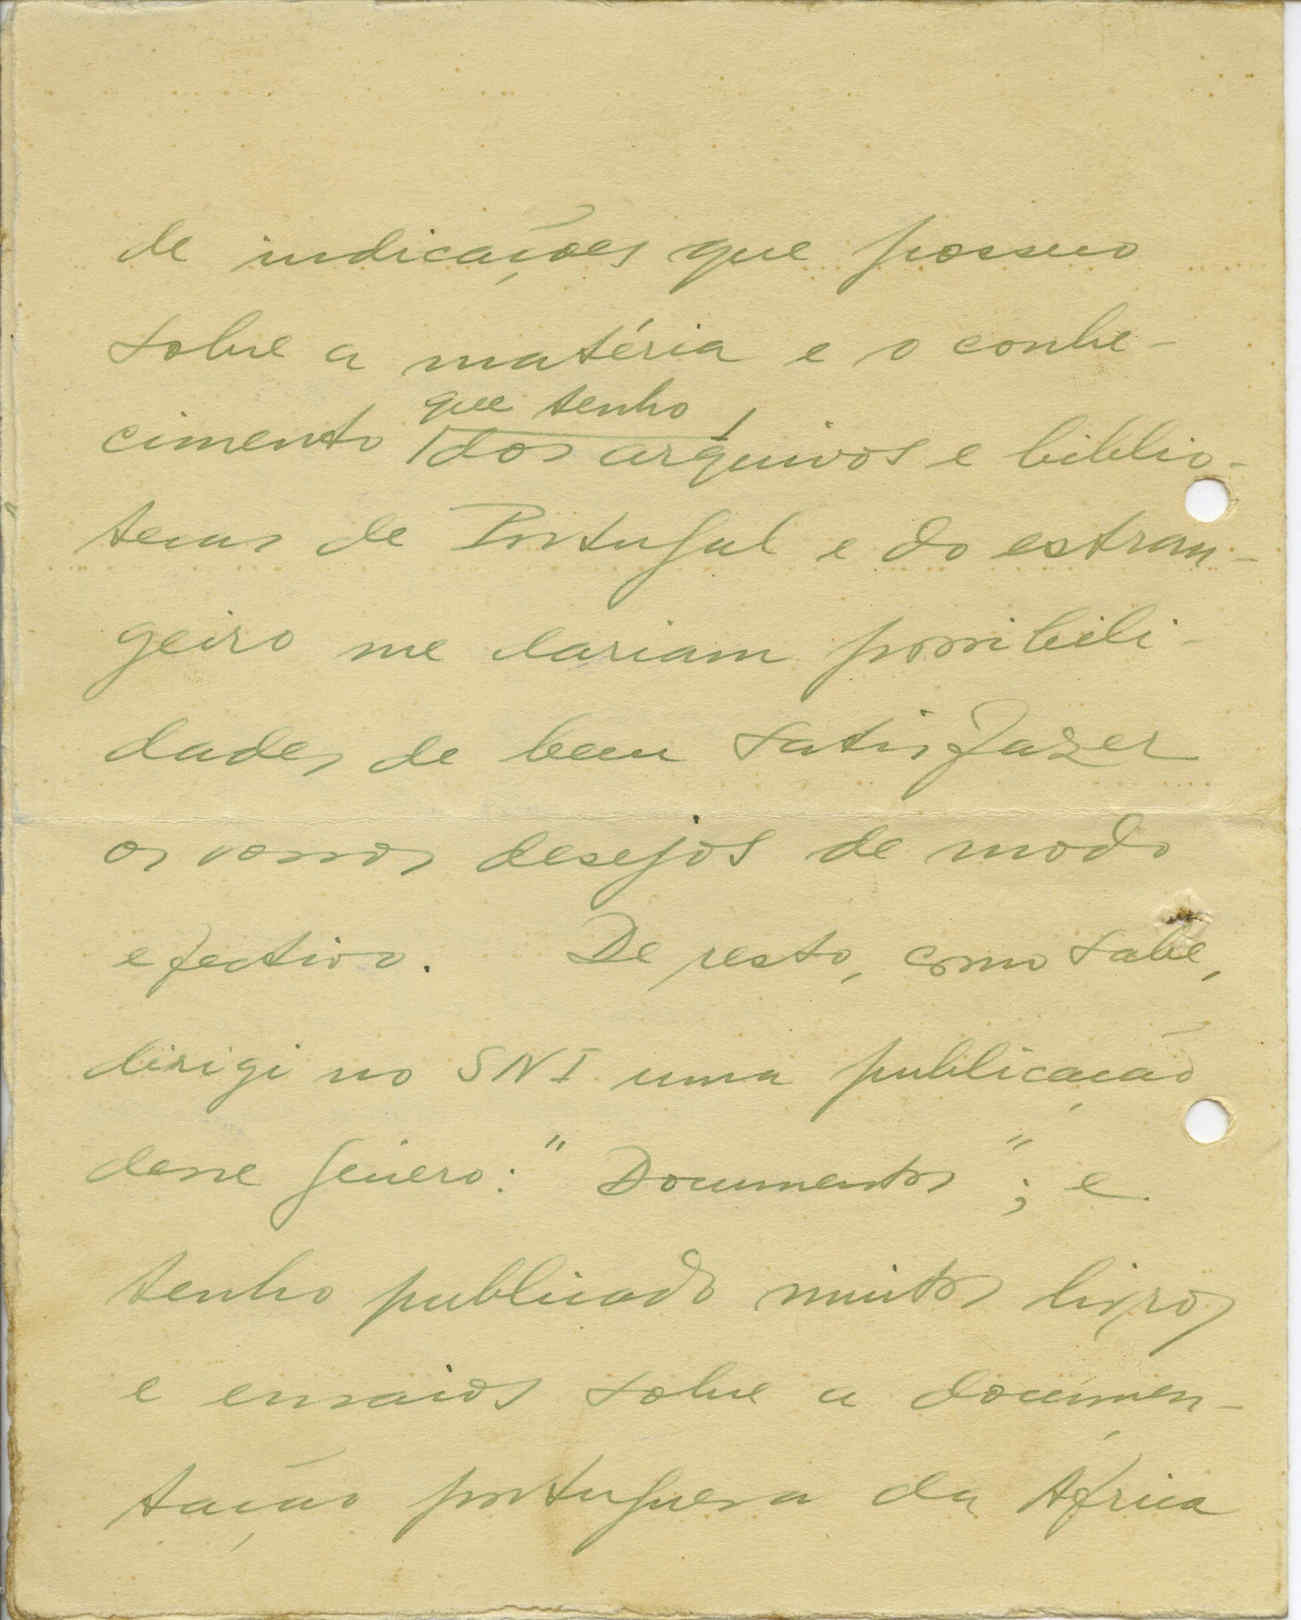 de indicações que possuo
sobre a matéria e o conhe-
cimento que tenho dos arquivos e biblio-
tecas de Portugal e do estran-
geiro me dariam possibili-
dades de bem satisfazer
os vossos desejos de modo
efectivo. De resto, como sabe,
dirigi no SNI uma publicação
desse género: "Documentos"; e
tenho publicado muitos livros
e ensaios sobre a documen-
tação portuguesa da África